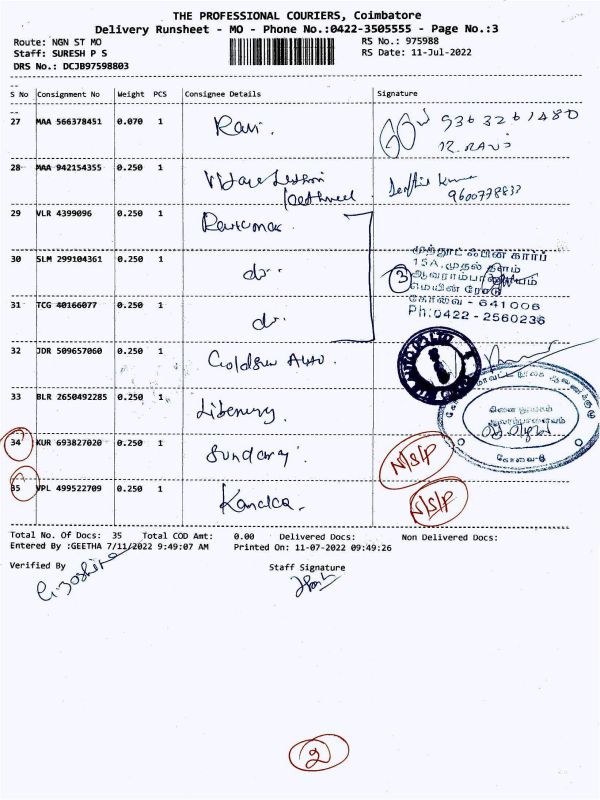 THE PROFESSIONAL COURIERS, Coimbatore
Delivery Runsheet - MO - Phone No.:0422-3505555 - Page No.:3
Route: NGN ST MO
RS No.: 975988
Staff: SURESH P S
RS Date: 11-Jul-2022
DRS No.: DCJB97598803
S No Consignment No Weight PCS Consignee Details Signature
27 MAA 566378451 0.070 1 Ravi. 9363261480
R. RAVI
28 MAA 942154355 0.250 1
9600778837
29 VLR 4399096 0.250 1
30 SLM 299104361 0.250 1 do.
முத்தூட் பின் கார்ப்
15A, முதல் தளம்
3 ஆவாரம்பாளையம்
மெயின் ரோடு
கோவை - 641006
Ph:0422 - 2560236
31 TCG 40166077 0.250 1 do.
32 JDR 509657060 0.250 1 Golden Auto.
33 BLR 2650492285 0.250 1
கிளை நூலகம்
ஆவாரம்பாளையம்
கோவை-6
34 KUR 693827020 0.250 1 Sundary N/S/P
35 VPL 499522709 0.250 1 N/S/P
Total No. Of Docs: 35 Total COD Amt: 0.00 Delivered Docs: Non Delivered Docs:
Entered By :GEETHA 7/11/2022 9:49:07 AM Printed On: 11-07-2022 09:49:26
Verified By Staff Signature
2